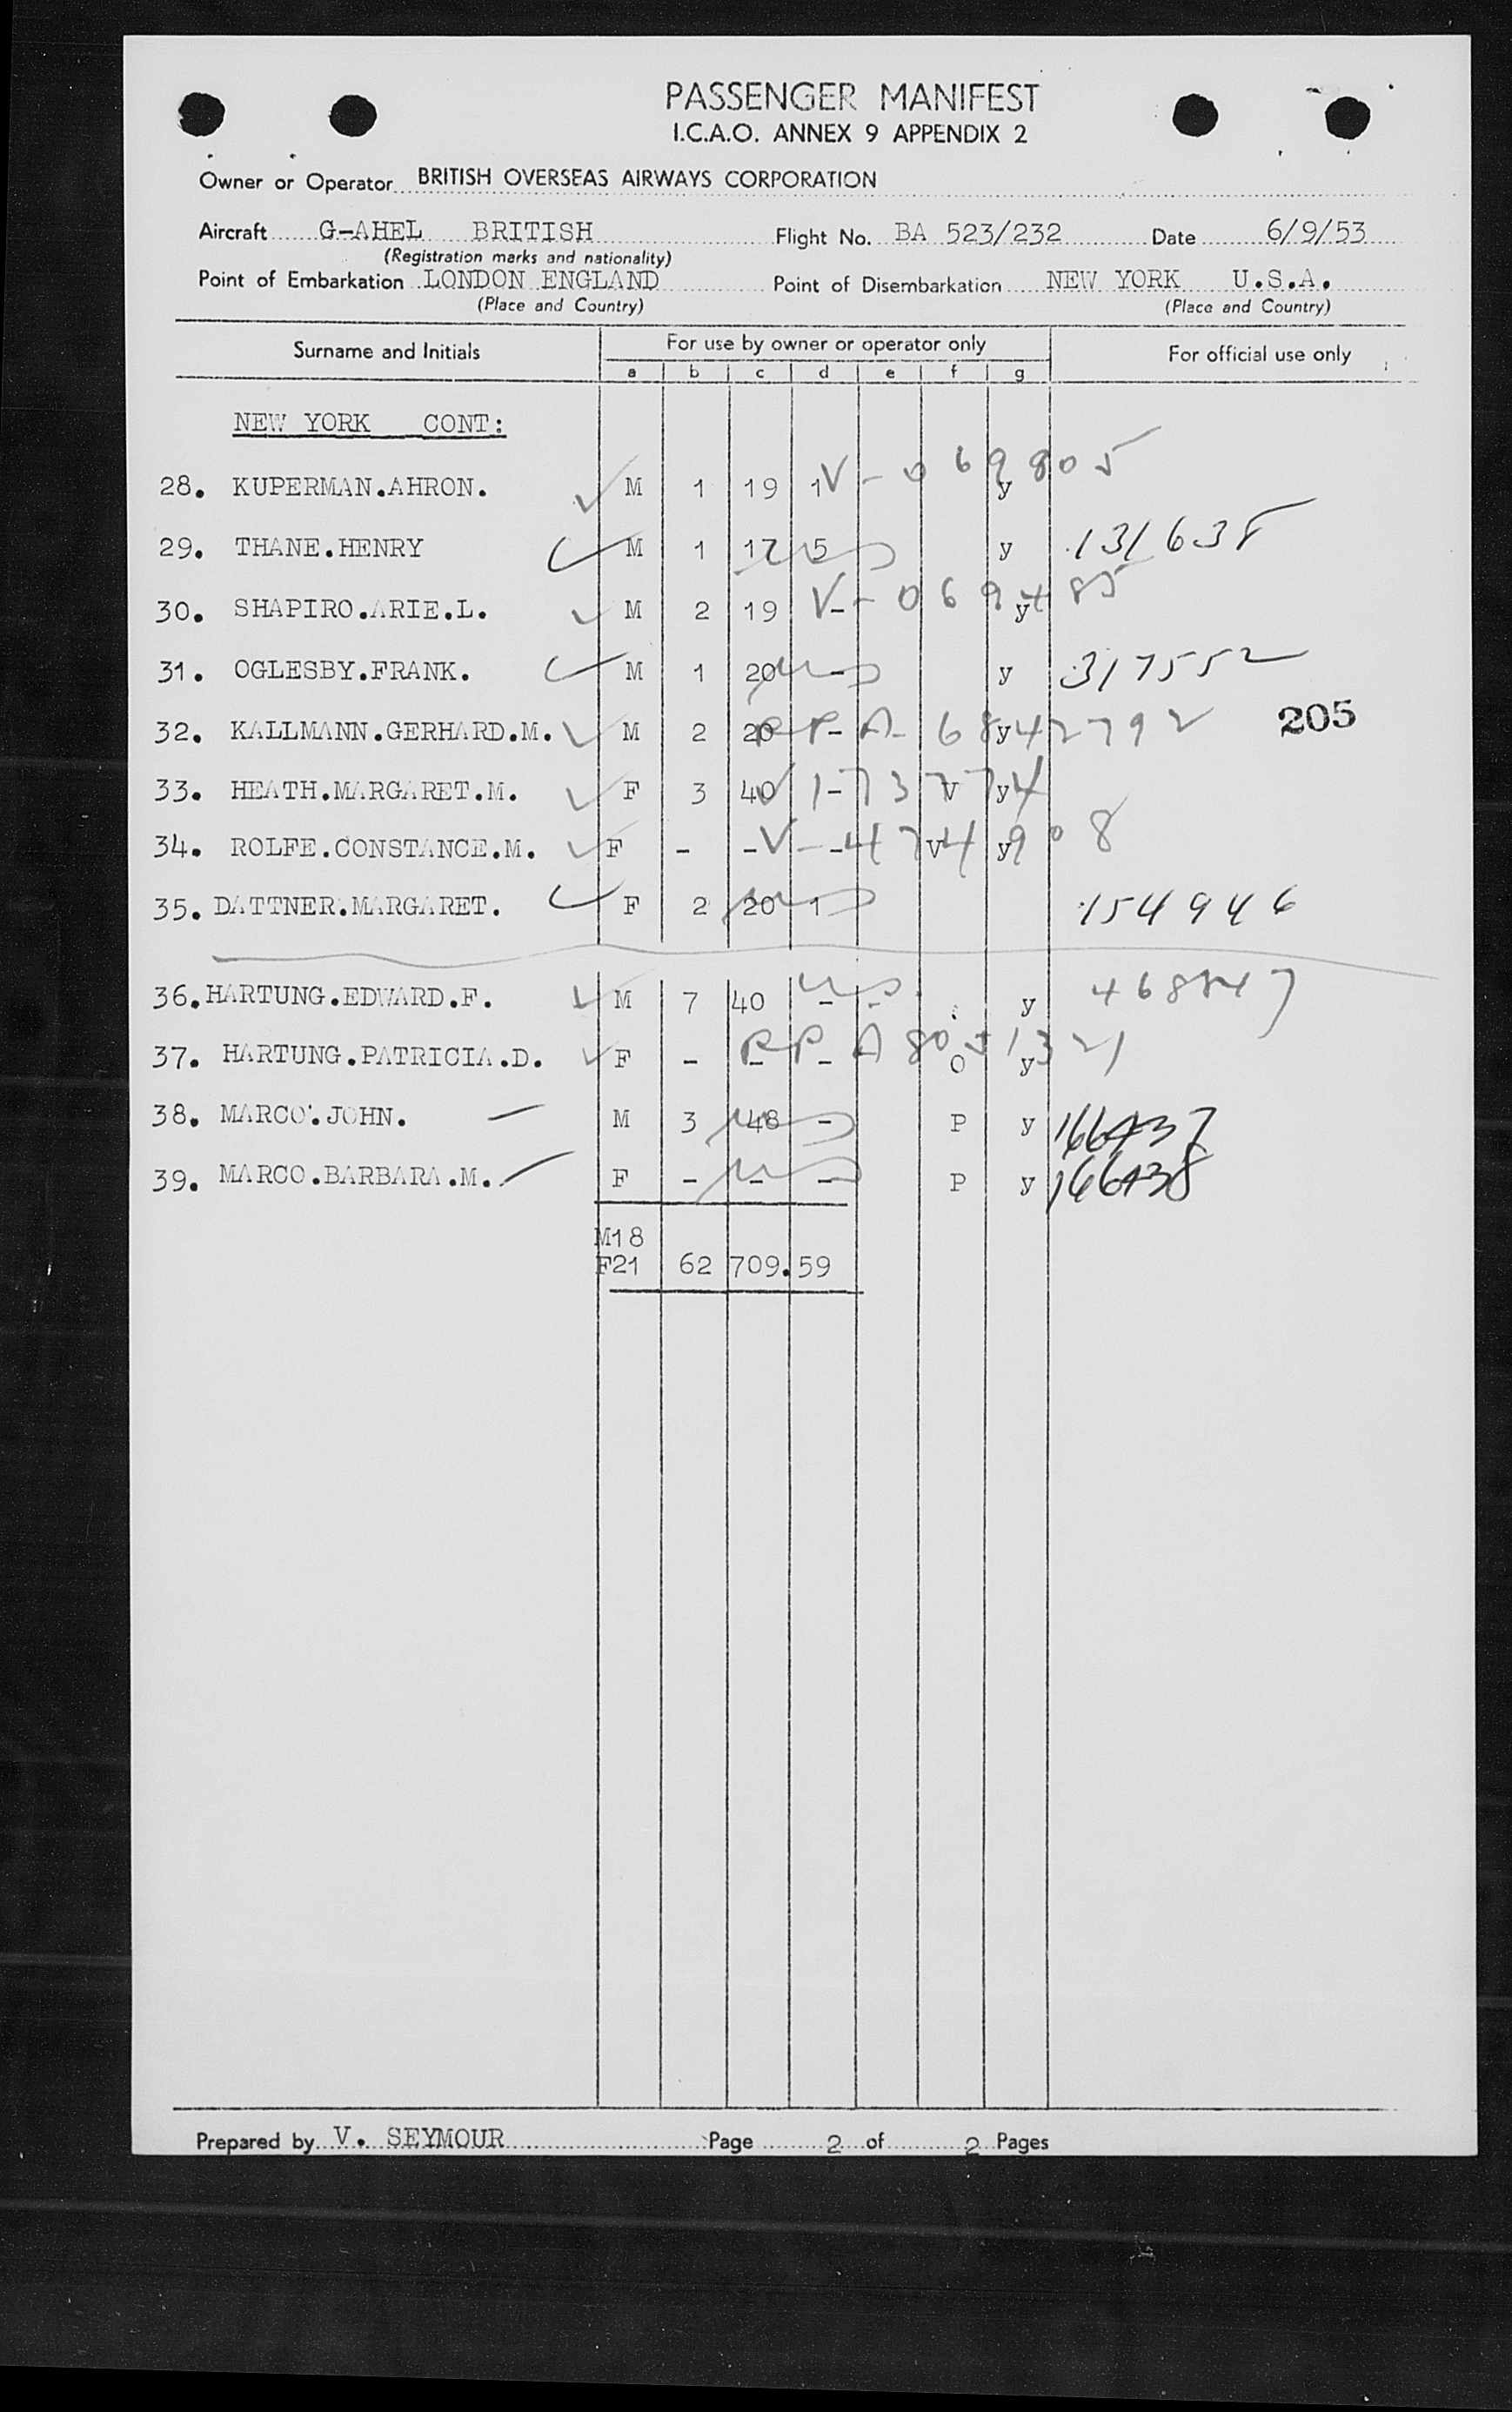 PASSENGER MANIFEST
I.C.A.O. ANNEX 9 APPENDIX 2
Owner or Operator BRITISH OVERSEAS AIRWAYS CORPORATION
Aircraft G-AHEL BRITISH Flight No. BA 523/232 Date 6/9/53
(Registration marks and nationality)
Point of Embarkation LONDON ENGLAND Point of Disembarkation NEW YORK U.S.A.
(Place and Country) (Place and Country)
Surname and Initials For use by owner or operator only For official use only
a b c d e f g
NEW YORK CONT:
28. KUPERMAN.AHRON. M 1 19 1 y V-069805
29. THANE.HENRY M 1 17 5 y 131638
30. SHAPIRO.ARIE.L. M 2 19 - y V-069485
31. OGLESBY.FRANK. M 1 20 - y 317552
32. KALLMANN.GERHARD.M. M 2 20 - y RPA-6842792 205
33. HEATH.MARGARET.M. F 3 40 - V y
34. ROLFE.CONSTANCE.M. F - - - V y V-474908
35. DATTNER.MARGARET. F 2 20 1 154946
36. HARTUNG.EDWARD.F. M 7 40 - - y
37. HARTUNG.PATRICIA.D. F - - - O y RPA
38. MARCO.JOHN. M 3 48 - P y
39. MARCO.BARBARA.M. F - - - P y
M18
F21 62 709.59
Prepared by V. SEYMOUR Page 2 of 2 Pages